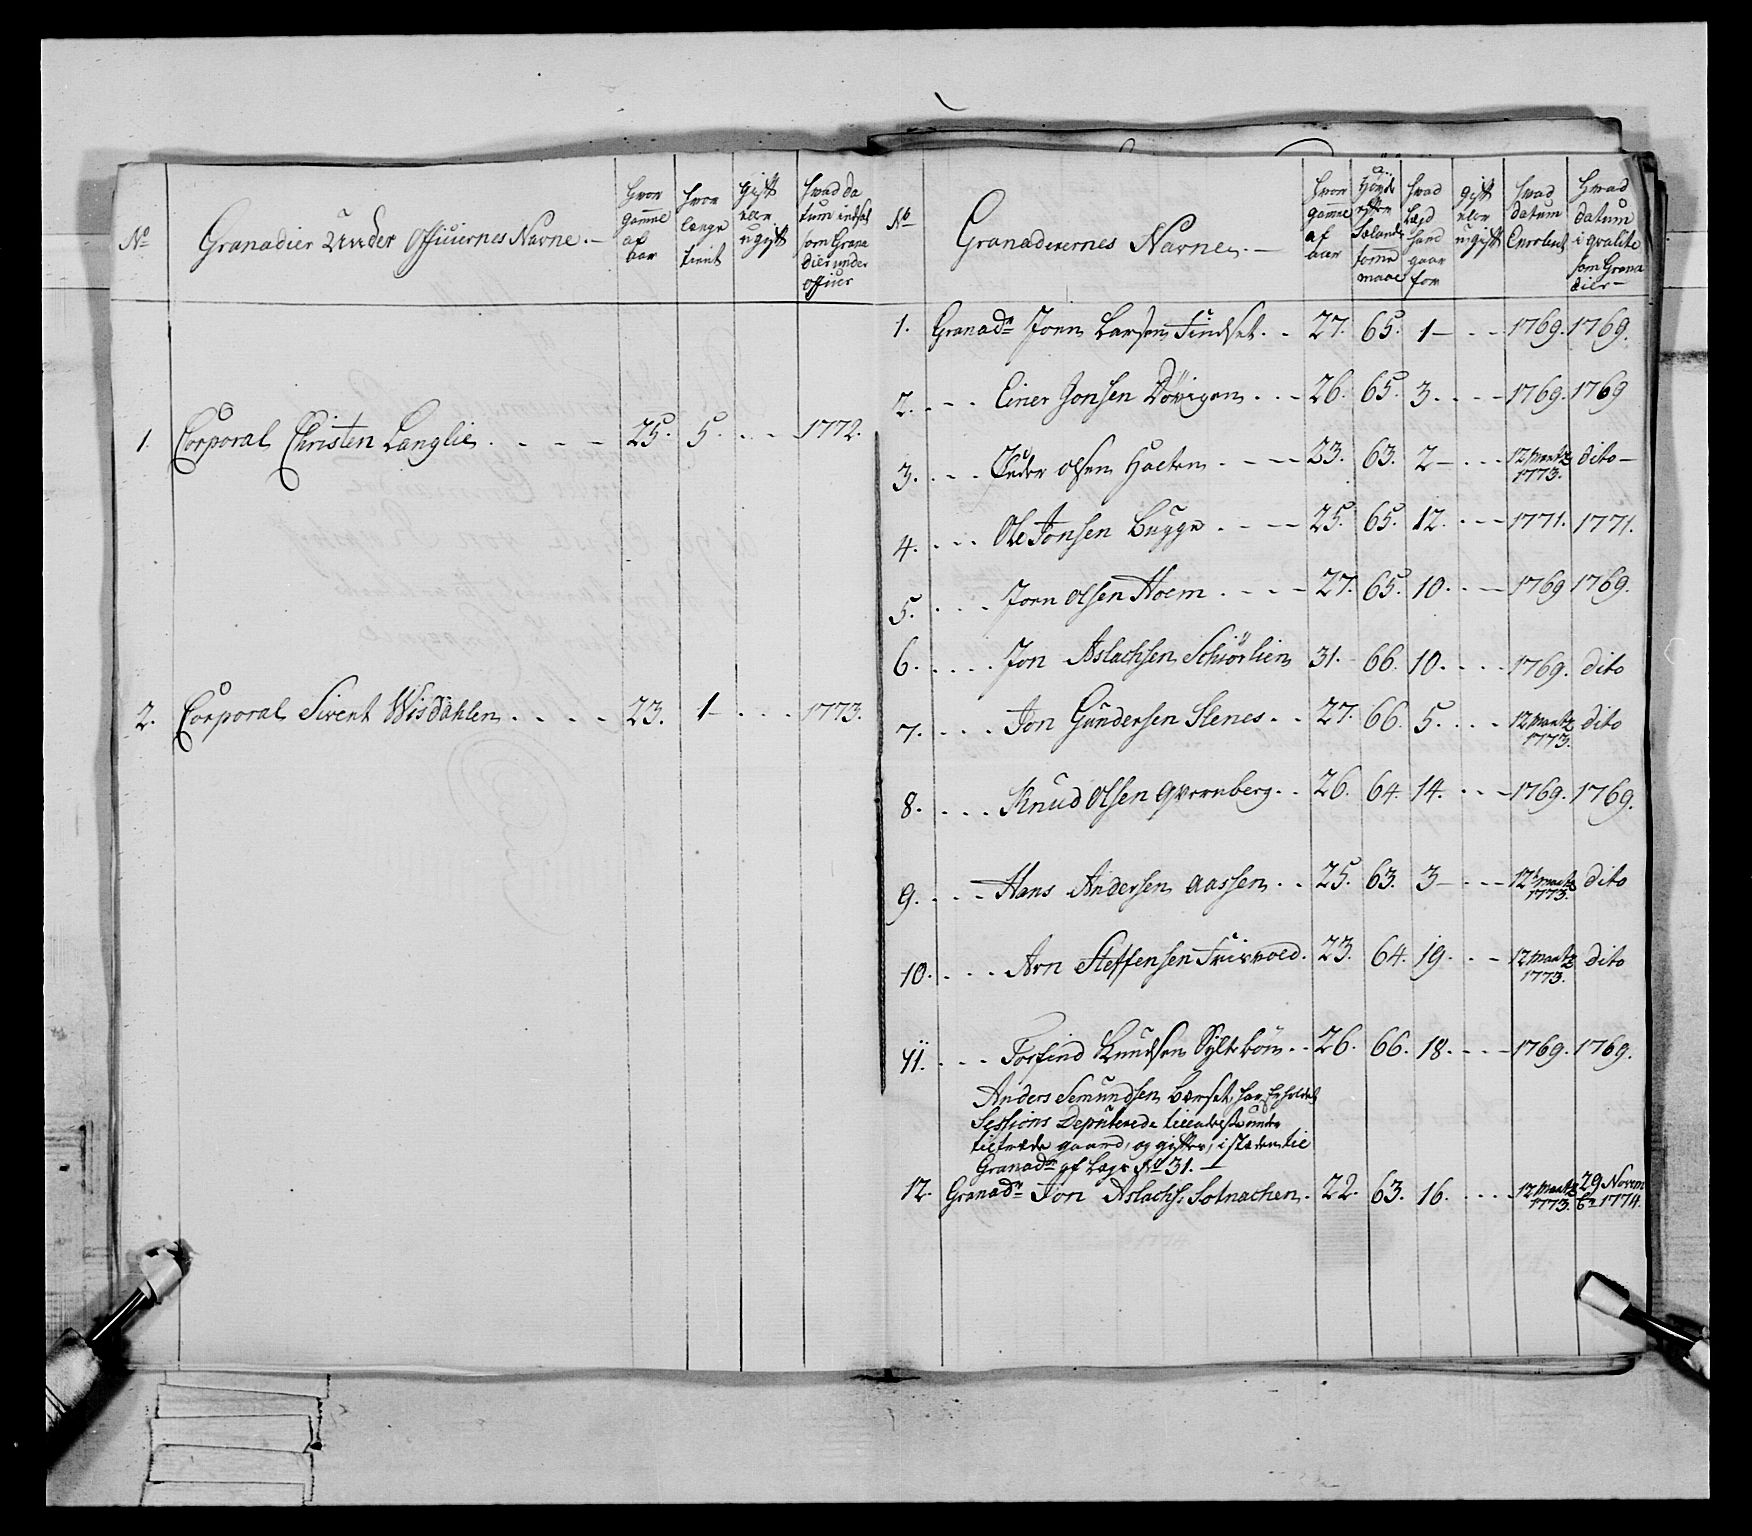 No
Granadier Under Officiernes Navne. -
hvor gamle af aar
hvor længe tient
gift eller ugift
hvad datum indsat som Granadier under officier
1. Corporal Christen Langlie . - - - 25. 5. - - 1772.
2. Corporal Sivert Wisdahlen . - - - 23. 1 - - - 1773.
No
Granaderernes Navne. -
hvor gamle af aar
Høyde efter Sælands tomme maal
hvad Lægd hand gaar for
gift eller ugift
hvad datum Enrolert
Hvad datum i qvalite som Granadier -
1. Granadr Joen Larsen Tindset - - 27. 65. 1 - - - 1769. 1769.
2. - - - Einer Jonsen Dövigen . - - 26. 65. 3. - - - 1769. 1769
3. - - - Peder Olsen Haeten . - - - 23. 63. 2 - - - 12 Martz 1773. dito -
4. - - - Ole Jonsen Bugge . - - - 25. 65. 12. - - - 1771. 1771.
5. - - - Joen Olsen Hoem . - - - 27. 65. 10. - - - 1769 1769.
6. - - - Jon Aslachsen Schiörlien 31. 66. 10. - - - 1769. dito
7. - - - Jon Gundersen Stenes - - 27. 66. 5. - - - 12 Martz 1773. dito
8. - - - Knud Olsen Qvernberg. - - 26. 64. 14. - - - 1769. 1769.
9. - - - Hans Andersen Aassen . - - 25. 63. 3 - - - 12 Martz 1773. dito
10. - - - Arn Steffensen Frisvold. 23. 64. 19. - - 12 Martz 1773. dito
11. - - - Torfind Knudsen Syltebön - - 26. 66. 18. - - - 1769. 1769.
Anders Semundsen Berset, har Erholdet
Sessions Deputerede tilladelse under
tiltræde gaard, og giftes, i steden til
Granadr af Lægd No 31. -
12. Granadr Jon Aslachs: Solnachen . 22. 63. 16. - - - 12 Martz 1773. 29 Novembr 1774.